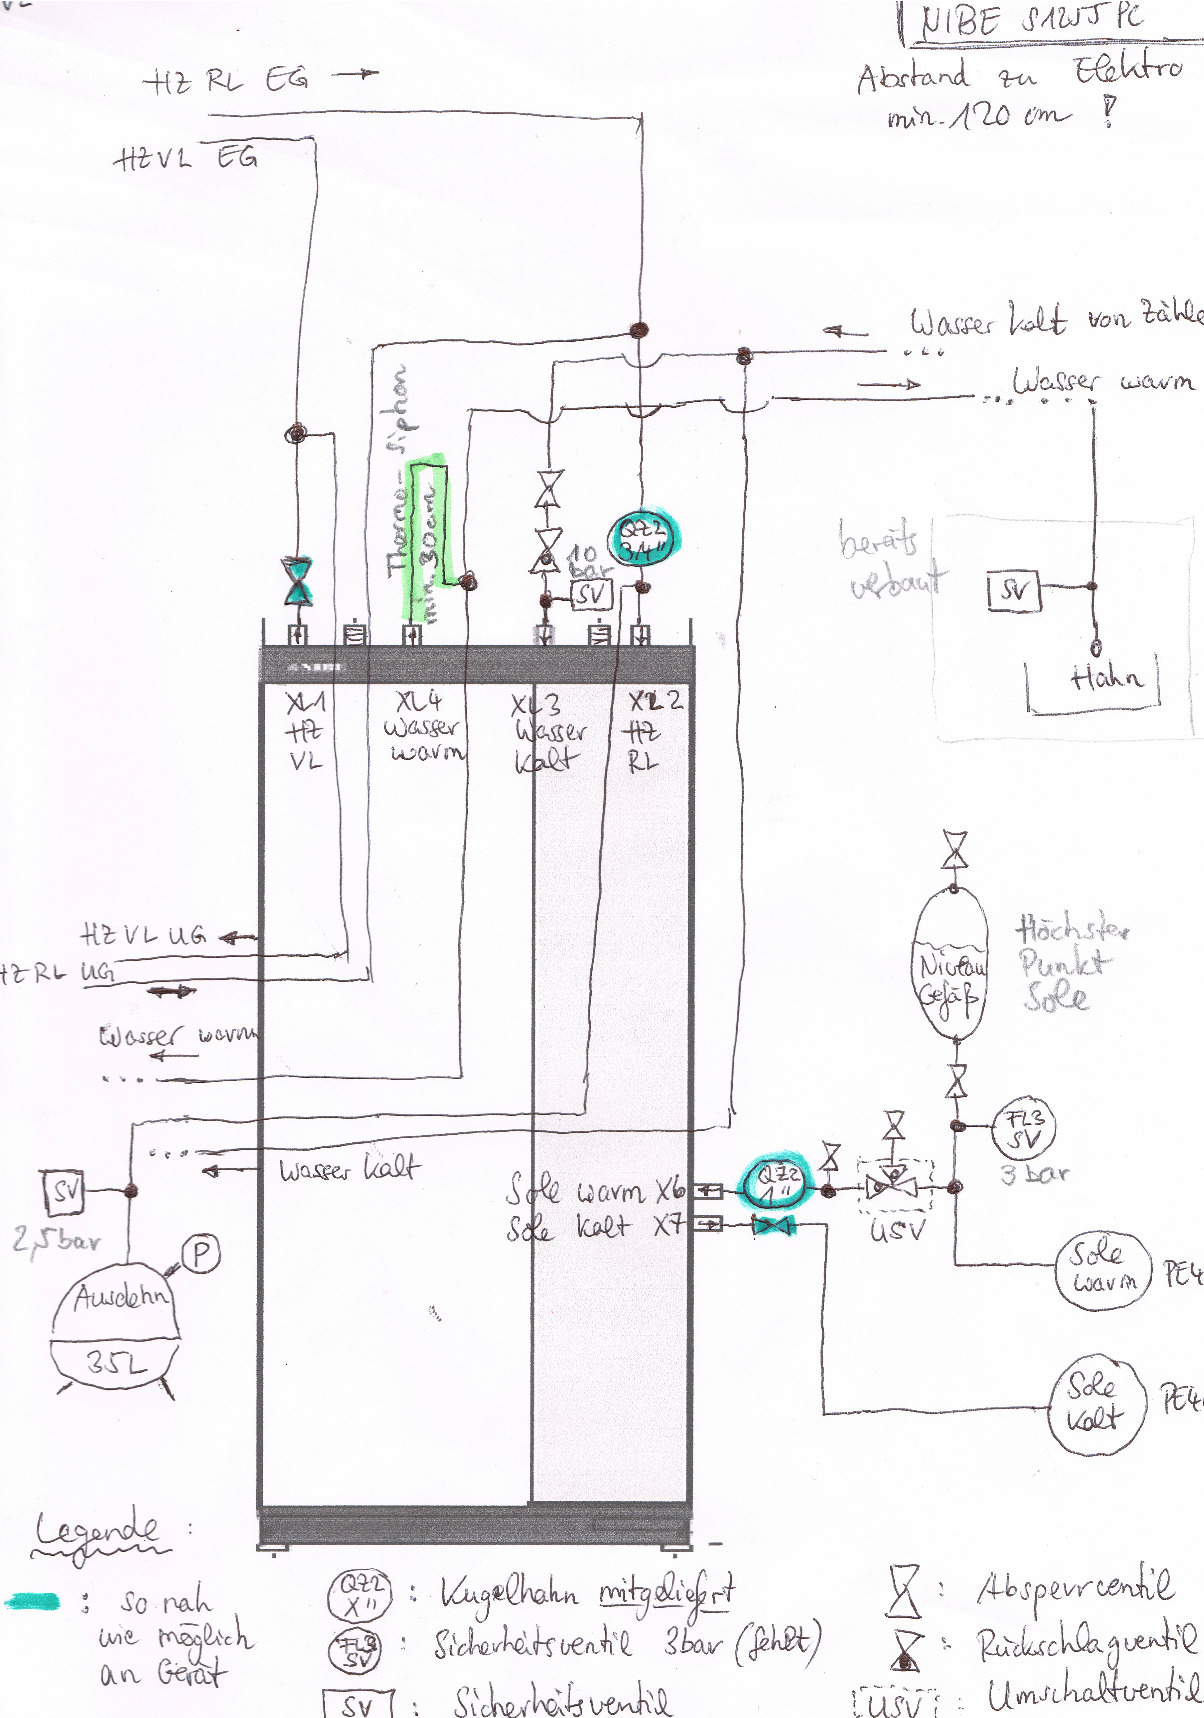 VL
NIBE S1255 PC
Abstand zu Elektro
min. 120 cm !
HZ RL EG →
HZ VL EG
Wasser kalt von Zähle
Wasser warm
Thermo-siphon
min. 30cm
QZ2
3/4"
10
bar
SV
bereits
verbaut
SV
Hahn
XL1
HZ
VL
XL4
Wasser
warm
XL3
Wasser
kalt
XL2
HZ
RL
HZ VL UG
HZ RL UG
Wasser warm
Wasser kalt
Niveau
Gefäß
Höchster
Punkt
Sole
FL3
SV
3 bar
SV
2,5 bar
P
Ausdehn
35L
Sole warm X6
Sole kalt X7
QZ2
1"
USV
Sole
warm
PE4
Sole
kalt
PE4
Legende :
: so nah
wie möglich
an Gerät
QZ2
X"
: Kugelhahn mitgeliefert
FL3
SV
: Sicherheitsventil 3bar (fehlt)
SV : Sicherheitsventil
: Absperrventil
: Rückschlagventil
USV : Umschaltventil